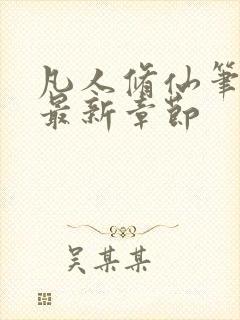 凡人脩仙筆
最新章節
吳某某